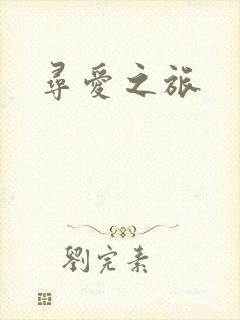 尋愛之旅
劉完素